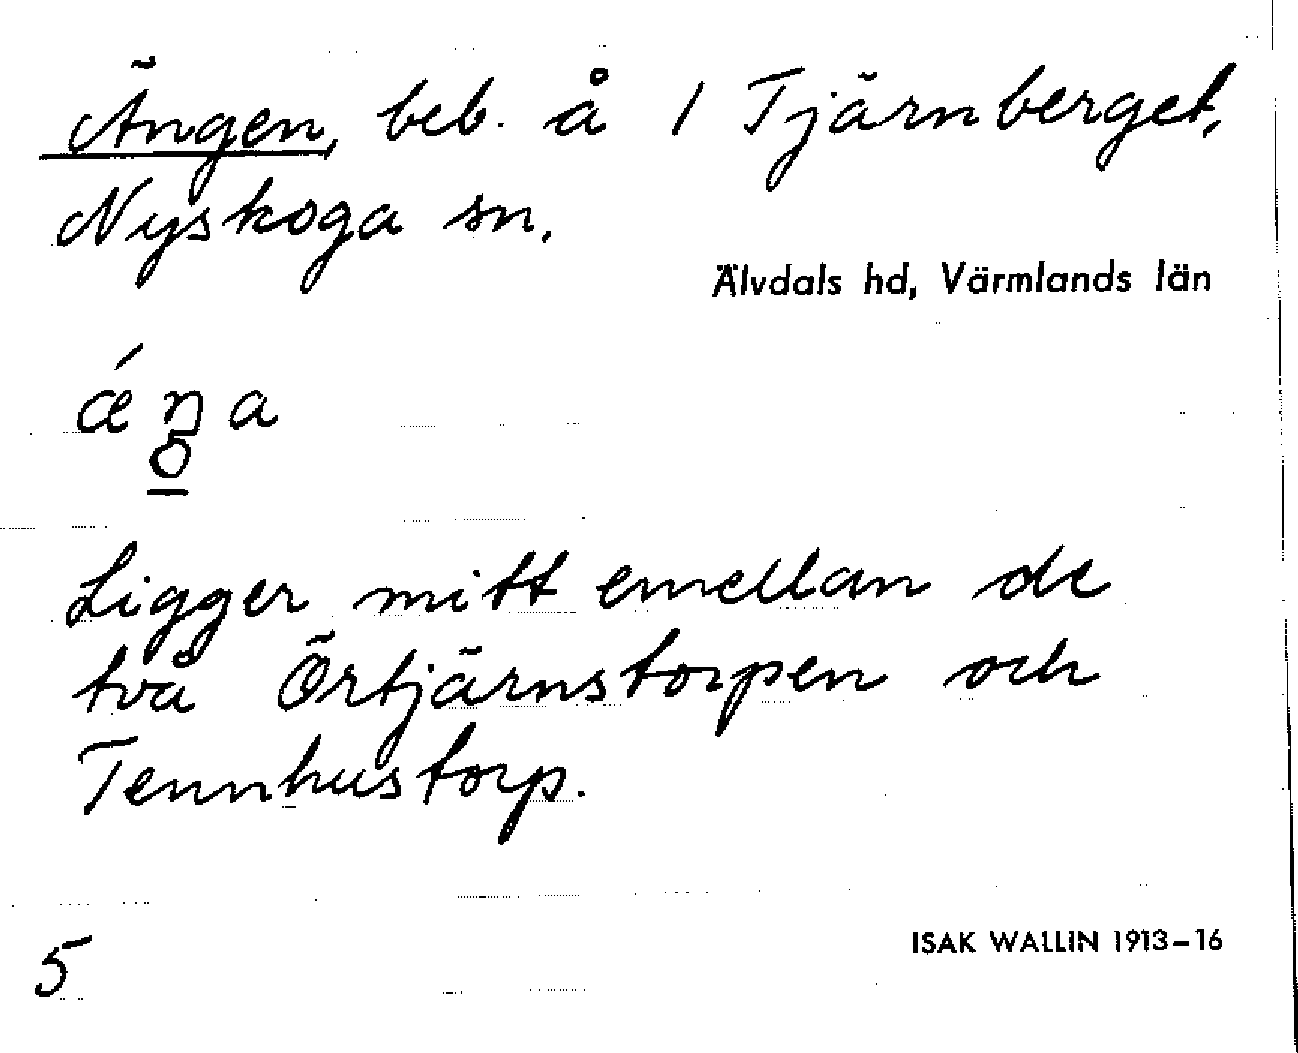 Ängen, beb. å 1 Tjärnberget,
Nyskoga sn.
Älvdals hd, Värmlands län
ǽŋa
o
Ligger mitt emellan de
två Örtjärnstorpen och
Tennhustorp.
5
ISAK WALLIN 1913–16